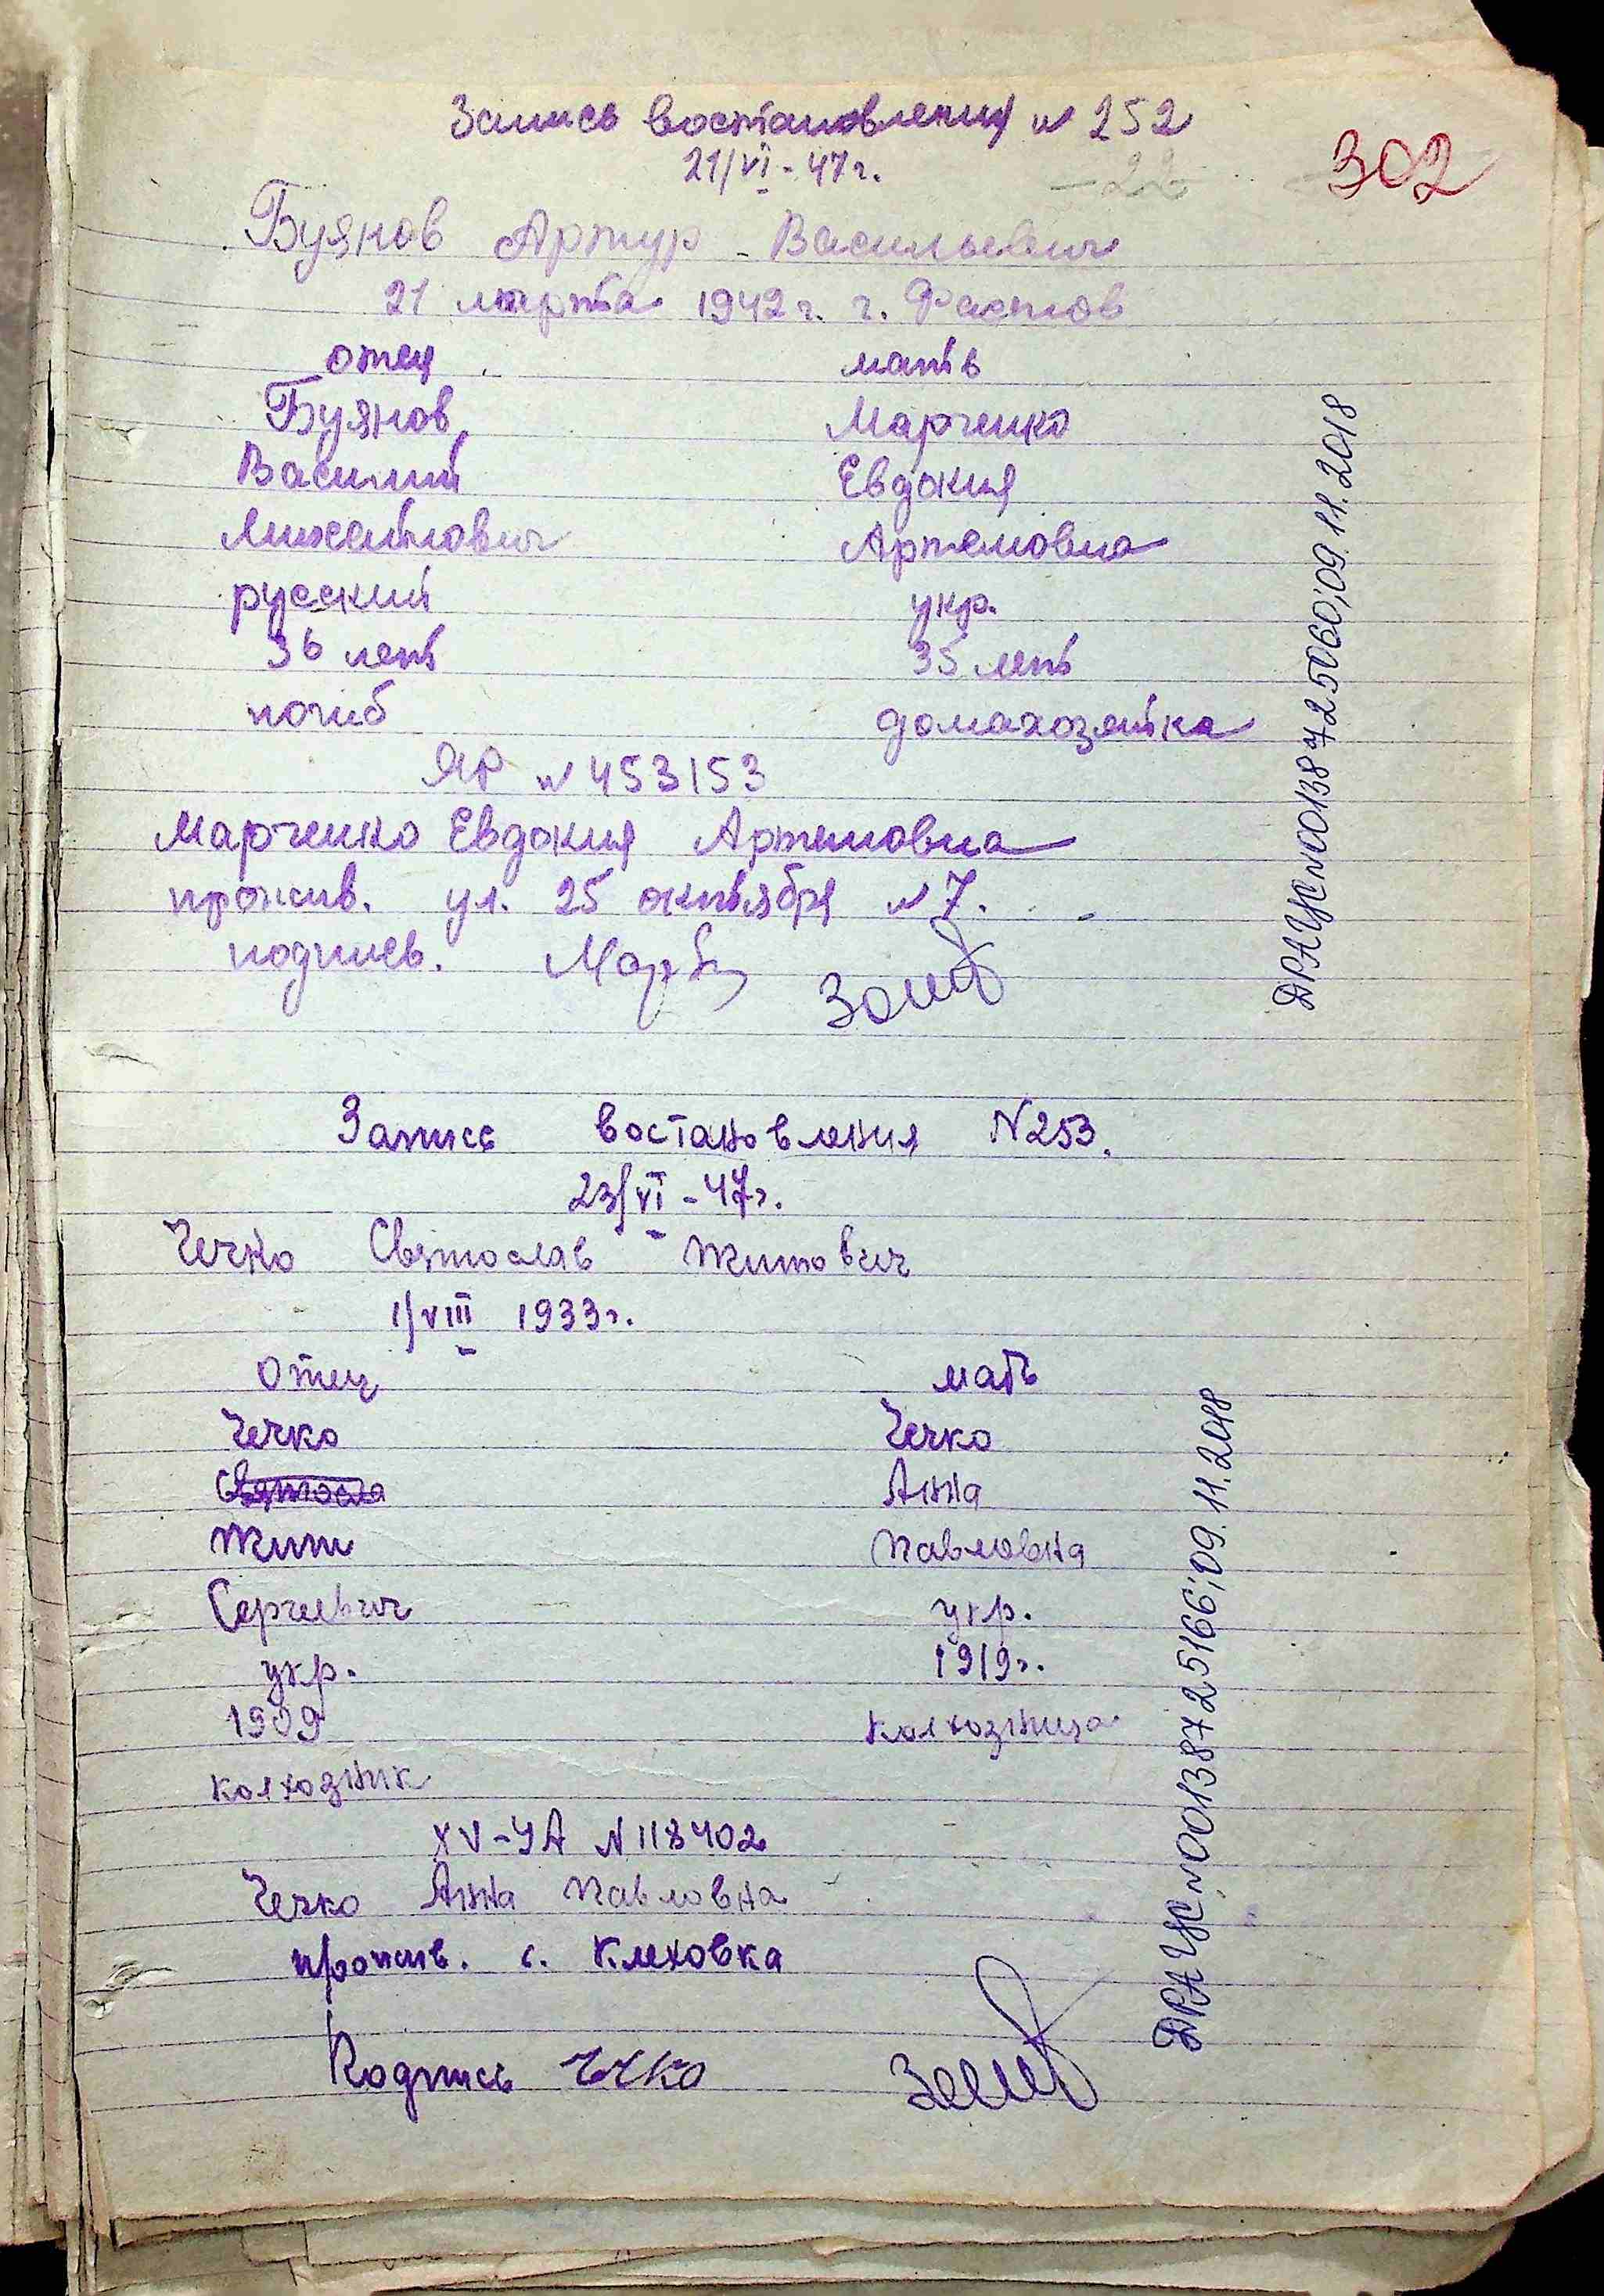 Запись востановления N 252
302
21/VI - 47 г.
22
Буянов Артур Васильевич
21 марта 1942 г. г. Фастов
отец мать
Буянов Марченко
Василий Евдокия
Михайлович Артемовна
русский укр.
36 лет 35 лет
погиб домахозяйка
ЯР N 453153
Марченко Евдокия Артемовна
прожив. ул. 25 октября N 7.
подпись.
ДРАЦС N 00138725060; 09.11.2018
Запись востановления N 253.
23/VI - 47 г.
Чечко Святослав Титович
1/VIII 1933 г.
Отец мать
Чечко Чечко
Святосла Анна
Тит Павловна
Сергеевич укр.
укр. 1919 г.
1909 колхозница
колхозник
XV-УА N 118402
Чечко Анна Павловна
прожив. с. Клеховка
Подпись Чечко
ДРАЦС N 00138725166; 09.11.2018